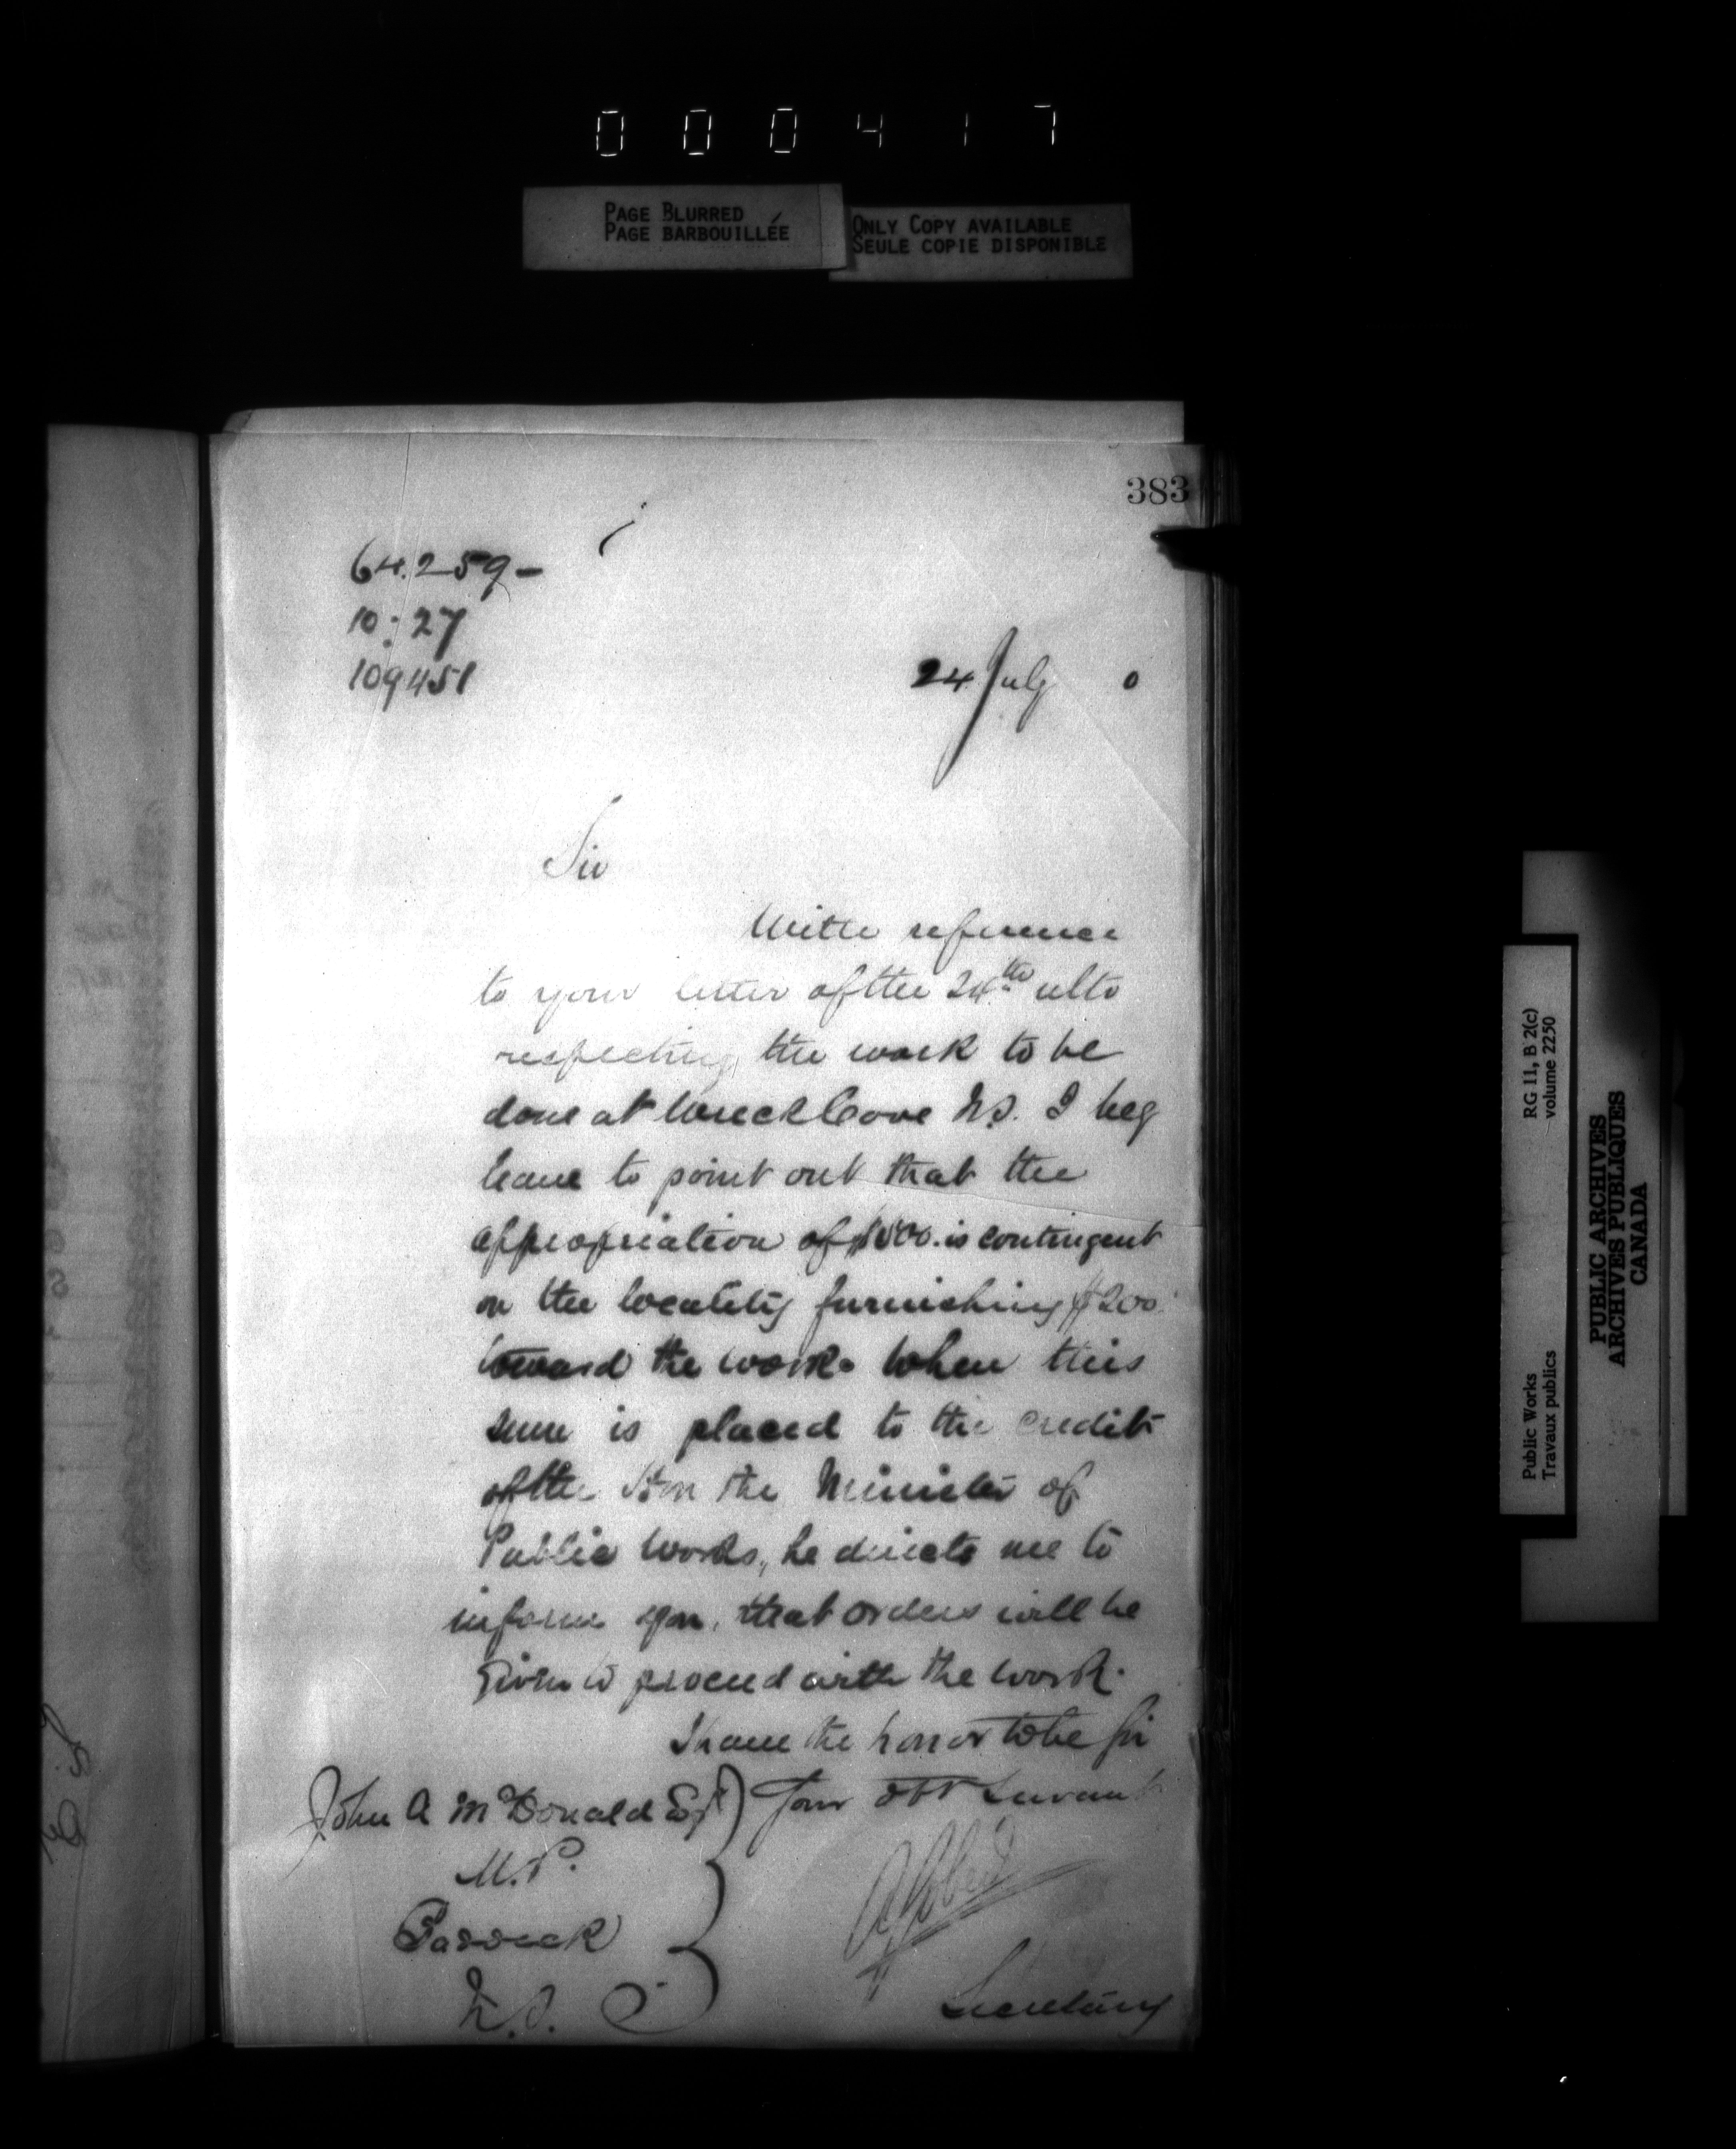 000417
PAGE BLURRED
PAGE BARBOUILLÉE
ONLY COPY AVAILABLE
SEULE COPIE DISPONIBLE
383
64.259-
10:27
109451
24 July 0
Sir
With reference
to your letter of the 24th ulto
respecting the work to be
done at Wreck Cove N.S. I beg
leave to point out that the
appropriation of $500. is contingent
on the locality furnishing $200
toward the work. When this
sum is placed to the credit
of the Hon the Minister of
Public Works, he directs me to
inform you, that orders will be
given to proceed with the work.
I have the honor to be Sir
Your obt servant
John A McDonald Esqr
M.P.
N.S.
AGobeil
Secretary
Public Works
Travaux publics
RG 11, B 2(c)
volume 2250
PUBLIC ARCHIVES
ARCHIVES PUBLIQUES
CANADA